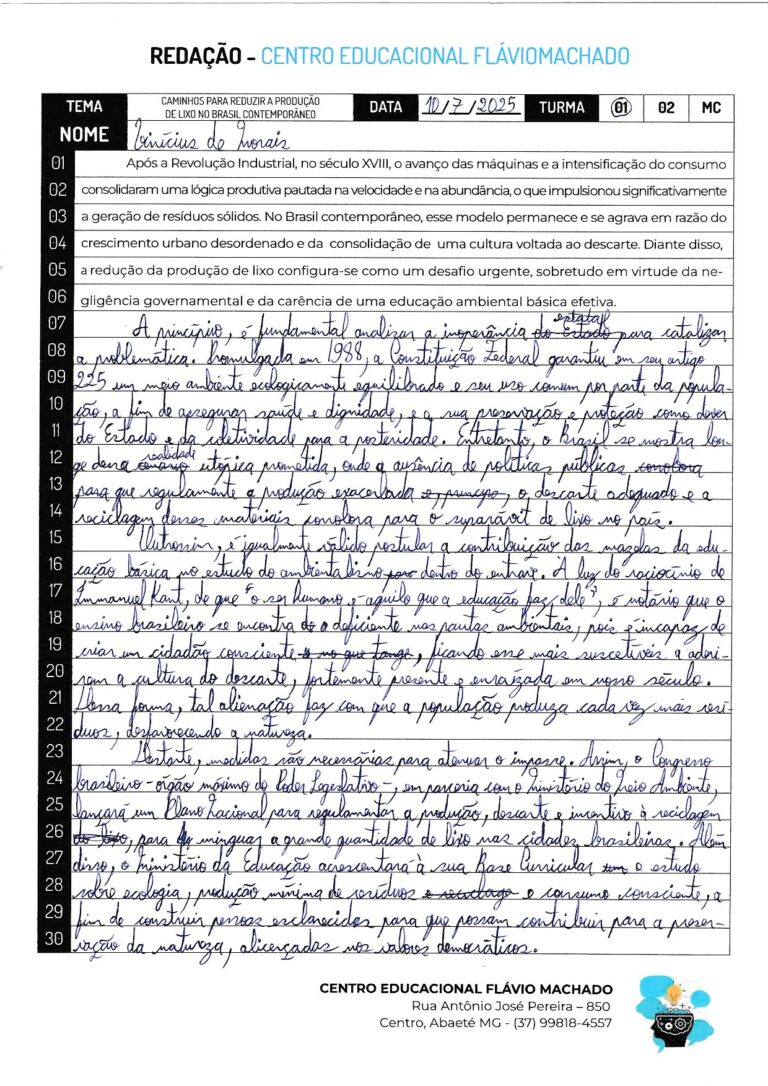 REDAÇÃO - CENTRO EDUCACIONAL FLÁVIOMACHADO
TEMA CAMINHOS PARA REDUZIR A PRODUÇÃO DE LIXO NO BRASIL CONTEMPORÂNEO DATA 10/7/2025 TURMA 01 02 MC
NOME Vinícius de Morais
01 Após a Revolução Industrial, no século XVIII, o avanço das máquinas e a intensificação do consumo
02 consolidaram uma lógica produtiva pautada na velocidade e na abundância, o que impulsionou significativamente
03 a geração de resíduos sólidos. No Brasil contemporâneo, esse modelo permanece e se agrava em razão do
04 crescimento urbano desordenado e da consolidação de uma cultura voltada ao descarte. Diante disso,
05 a redução da produção de lixo configura-se como um desafio urgente, sobretudo em virtude da ne-
06 gligência governamental e da carência de uma educação ambiental básica efetiva.
07 A princípio, é fundamental analizar a inoperância do Estado estatal para catalizar
08 a problemática. Promulgada em 1988, a Constituição Federal garantiu em seu artigo
09 225 um meio ambiente ecologicamente equilibrado e seu uso comum por parte da popula-
10 ção, a fim de assegurar saúde e dignidade, e a sua preservação e proteção como dever
11 do Estado e da coletividade para a posteridade. Entretanto, o Brasil se mostra lon-
12 ge dessa cenário realidade utópica prometida, onde a ausência de políticas públicas conolora
13 para que regulamente a produção exacerbada e, princípo, o descarte adequado e a
14 reciclagem desses materiais conolora para o superávit de lixo no país.
15 Outrossim, é igualmente válido postular a contribuição das mazelas da edu-
16 cação básica no estudo do ambientalismo para dentro do entrave. A luz do raciocínio de
17 Immanuel Kant, de que "o ser humano é aquilo que a educação faz dele", é notário que o
18 ensino brasileiro se encontra do o deficiente nas pautas ambientais, pois é incapaz de
19 criar um cidadão consciente e no que tange, ficando esse mais suscetíveis a aderi-
20 rem a cultura do descarte, fortemente presente e enraizada em nosso século.
21 Dessa forma, tal alienação faz com que a população produza cada vez mais resí-
22 duos, desfavorecendo a natureza.
23 Destarte, medidas são necessárias para atenuar o impasse. Assim, o Congresso
24 brasileiro - órgão máximo do Poder Legislativo -, em parceria com o Ministério do Meio Ambiente,
25 lançará um Plano Nacional para regulamentar a produção, descarte e incentivo à reciclagem
26 do lixo, para minguar a grande quantidade de lixo nas cidades brasileiras. Além
27 disso, o Ministério da Educação acrescentará à sua Base Curricular um o estudo
28 sobre ecologia, produção mínima de resíduos e reciclage e consumo consciente, a
29 fim de construir pessoas esclarecidas para que possam contribuir para a preser-
30 vação da natureza, alicerçadas nos valores democráticos.
CENTRO EDUCACIONAL FLÁVIO MACHADO
Rua Antônio José Pereira – 850
Centro, Abaeté MG - (37) 99818-4557